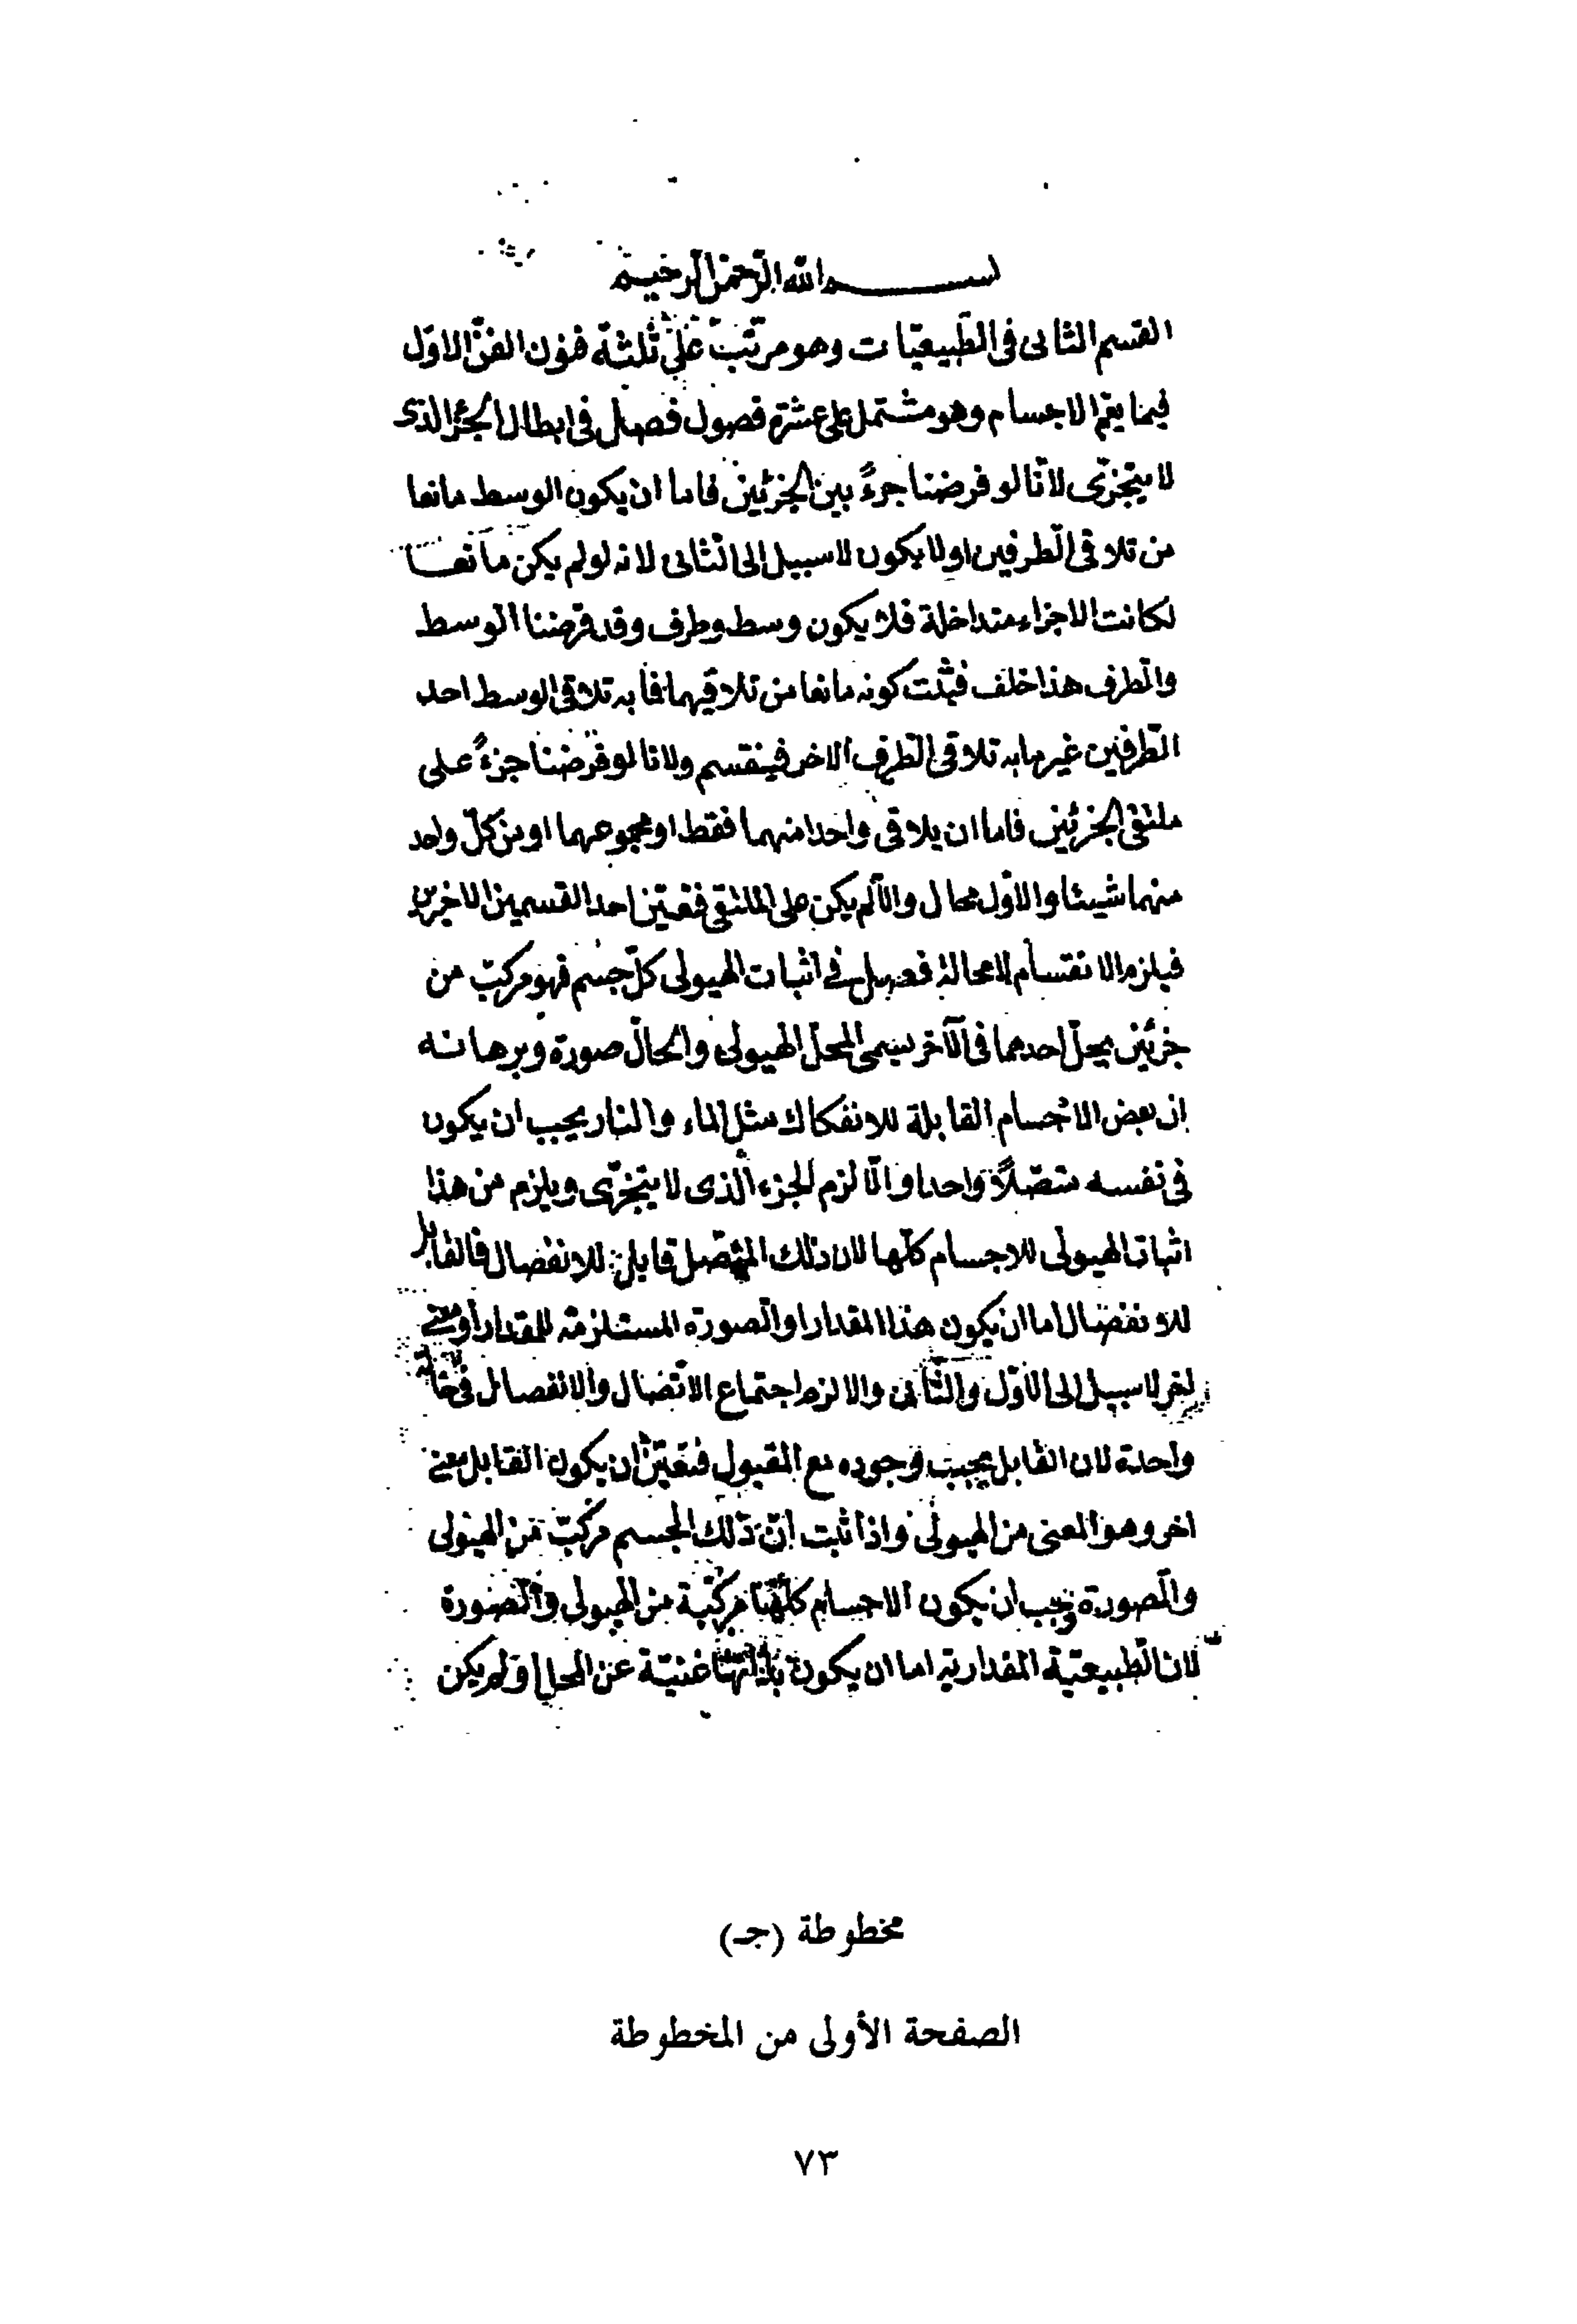 بسم الله الرحمن الرحيم
القسم الثانى فى الطبيعيّات وهو مرتّب على ثلثة فنون الفنّ الاوّل
فيما يعم الاجسام وهو مشتمل على عشرة فصول فصل فى ابطال الجزء الذى
لا يتجزّى لانّا لو فرضنا جزءً بين الجزئين فاما ان يكون الوسط مانعا
من تلاقى الطرفين او لا يكون لا سبيل الى الثانى لانه لو لم يكن مانعا
لكانت الاجزاء متداخلة فلا يكون وسط وطرف وقد فرضنا الوسط
والطرف هذا خلف فثبت كونه مانعا من تلاقيهما فما به تلاقى الوسط احد
الطرفين غير ما به تلاقى الطرف الاخر فينقسم ولانا لو فرضنا جزءً على
ملتقى الجزئين فاما ان يلاقى واحدا منهما فقط او مجموعهما او من كلّ واحد
منهما شيئا والاوّل محال والّا لم يكن على الملتقى فتعيّن احد القسمين الاخرين
فيلزم الانقسام لا محالة فصل فى اثبات الهيولى كلّ جسم فهو مركب من
جزئين يحلّ احدهما فى الآخر يسمى المحلّ الهيولى والحالّ صورة وبرهانه
ان بعض الاجسام القابلة للانفكاك مثل الماء والنار يجب ان يكون
فى نفسه متّصلاً واحدا والّا لزم الجزء الذى لا يتجزّى ويلزم من هذا
اثبات الهيولى للاجسام كلّها لان ذلك المتصل قابل للانفصال فالقابل
للانفصال اما ان يكون هذا المقدار او الصورة المستلزمة للمقدار او معنى
اخر لا سبيل الى الاوّل والثّانى والا لزم اجتماع الاتّصال والانفصال فى حالة
واحدة لان القابل يجب وجوده مع المقبول فتعيّن ان يكون القابل معنى
اخر وهو المعنى من الهيولى واذا ثبت انّ ذلك الجسم مركّب من الهيولى
والصورة وجب ان يكون الاجسام كلّها مركّبة من الهيولى والصورة
لان الطبيعيّة المقدارية اما ان يكون بذاتها غنيّة عن المحل او لم يكن
مخطوطة (جـ)
الصفحة الأولى من المخطوطة
٧٣